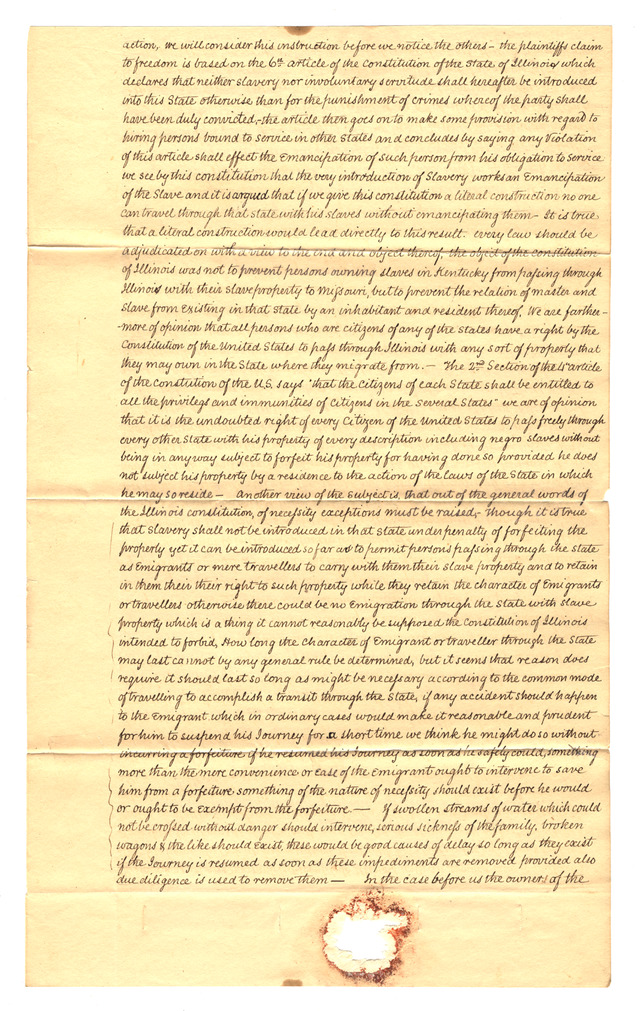 action, we will consider this instruction before we notice the others – the plaintiffs claim
to freedom is based on the 6th article of the Constitution of the State of Illinois which
declares that neither slavery nor involuntary servitude shall hereafter be introduced
into this State otherwise than for the punishment of crimes whereof the party shall
have been duly convicted,– the article then goes on to make some provision with regard to
hiring persons bound to service in other States and concludes by saying any Violation
of this article shall effect the Emancipation of such person from his obligation to service
we see by this constitution that the very introduction of Slavery works an Emancipation
of the Slave and it is argued that if we give this constitution a literal construction no one
can travel through that state with his slaves without emancipating them – It is true
that a literal construction would lead directly to this result. every law should be
adjudicated on with a view to the end and object thereof, the object of the constitution
of Illinois was not to prevent persons owning slaves in Kentucky from passing through
Illinois with their slave property to Missouri, but to prevent the relation of master and
slave from Existing in that State by an inhabitant and resident thereof, We are farther-
-more of opinion that all persons who are citizens of any of the states have a right by the
Constitution of the United States to pass through Illinois with any sort of property that
they may own in the State where they migrate from. – The 2nd Section of the 4th article
of the Constitution of the U.S. says "that the citizens of each State shall be entitled to
all the privilegs and immunities of Citizens in the Several States" we are of opinion
that it is the undoubted right of every Citizen of the United States to pass freely through
every other State with his property of every description including negro slaves without
being in any way subject to forfeit his property for having done so provided he does
not subject his property by a residence to the action of the laws of the State in which
he may so reside – Another view of the subject is, that out of the general words of
the Illinois constitution, of necessity exceptions must be raised,– though it is true
that slavery shall not be introduced in that State under penalty of forfeiting the
property yet it can be introduced so far as to permit persons passing through the state
as Emigrants or mere travellers to carry with them their slave property and to retain
in them their their right to such property while they retain the character of Emigrants
or travellers otherwise there could be no Emigration through the State with slave
property which is a thing it cannot reasonably be supposed the Constitution of Illinois
intended to forbid, How long the character of Emigrant or traveller through the State
may last cannot by any general rule be determined, but it seems that reason does
require it should last so long as might be necessary according to the common mode
of travelling to accomplish a transit through the State, if any accident should happen
to the Emigrant which in ordinary cases would make it reasonable and prudent
for him to suspend his Journey for a short time we think he might do so without
incurring a forfeiture if he resumed his Journey as soon as he safely could, something
more than the mere convenience or ease of the Emigrant ought to intervene to save
him from a forfeiture something of the nature of necessity should exist before he would
or ought to be exempt from the forfeiture – If swollen streams of water which could
not be crossed without danger should intervene, serious sickness of the family, broken
wagons & the like should Exist, these would be good causes of delay so long as they exist
if the Journey is resumed as soon as these impediments are removed provided also
due diligence is used to remove them – In the case before us the owners of the